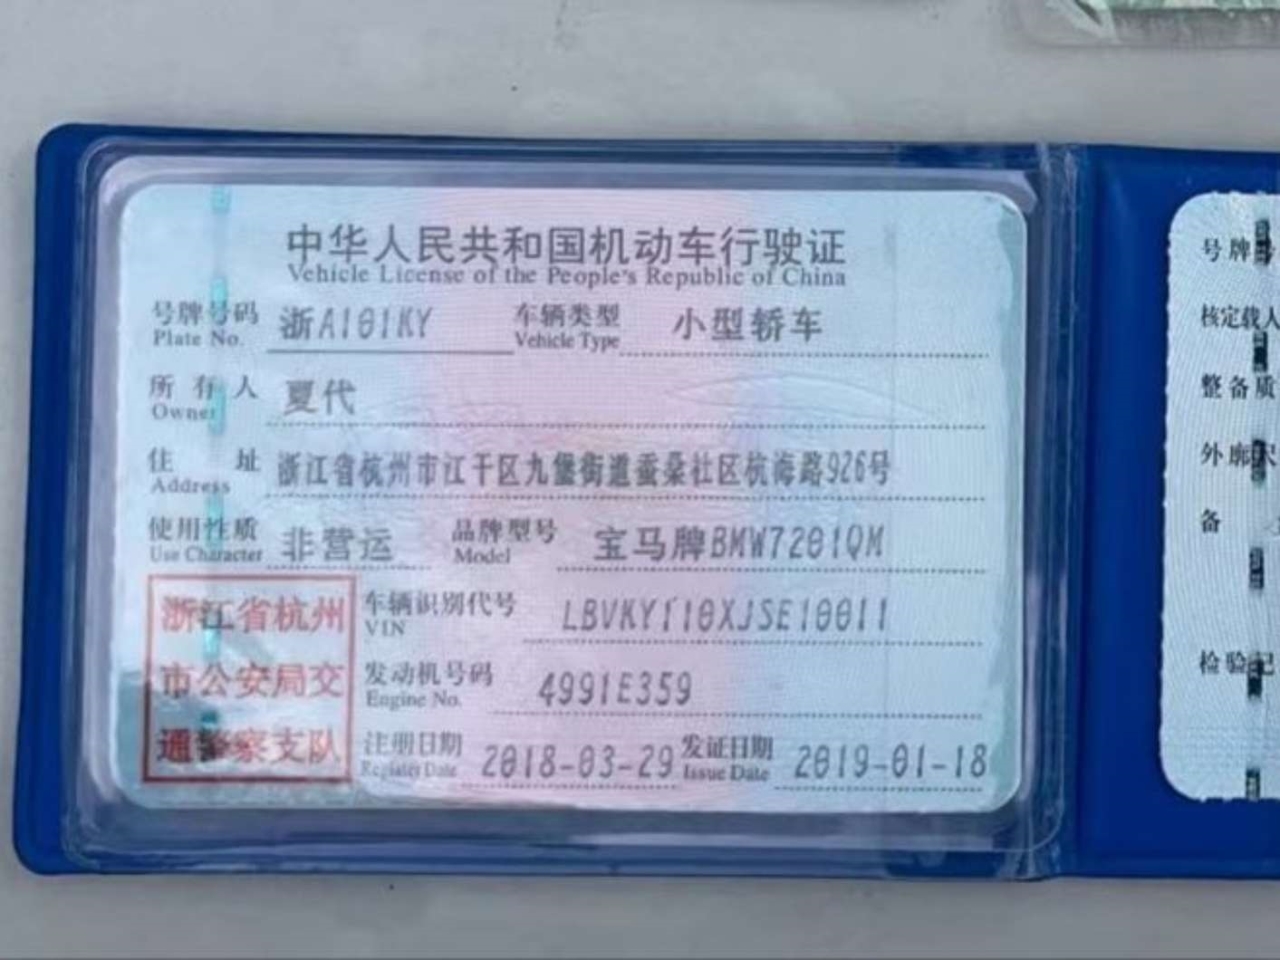 中华人民共和国机动车行驶证
Vehicle License of the People's Republic of China
号牌号码 浙A101KY 车辆类型 小型轿车
Plate No. Vehicle Type
所有人 夏代
Owner
住址 浙江省杭州市江干区九堡街道蚕桑社区杭海路926号
Address
使用性质 非营运 品牌型号 宝马牌BMW7201QM
Use Character Model
浙江省杭州
市公安局交
通警察支队
车辆识别代号 LBVKY110XJSE10011
VIN
发动机号码 4991E359
Engine No.
注册日期 2018-03-29 发证日期 2019-01-18
Register Date Issue Date
号牌
核定载人
整备质
外廓尺
备
检验记